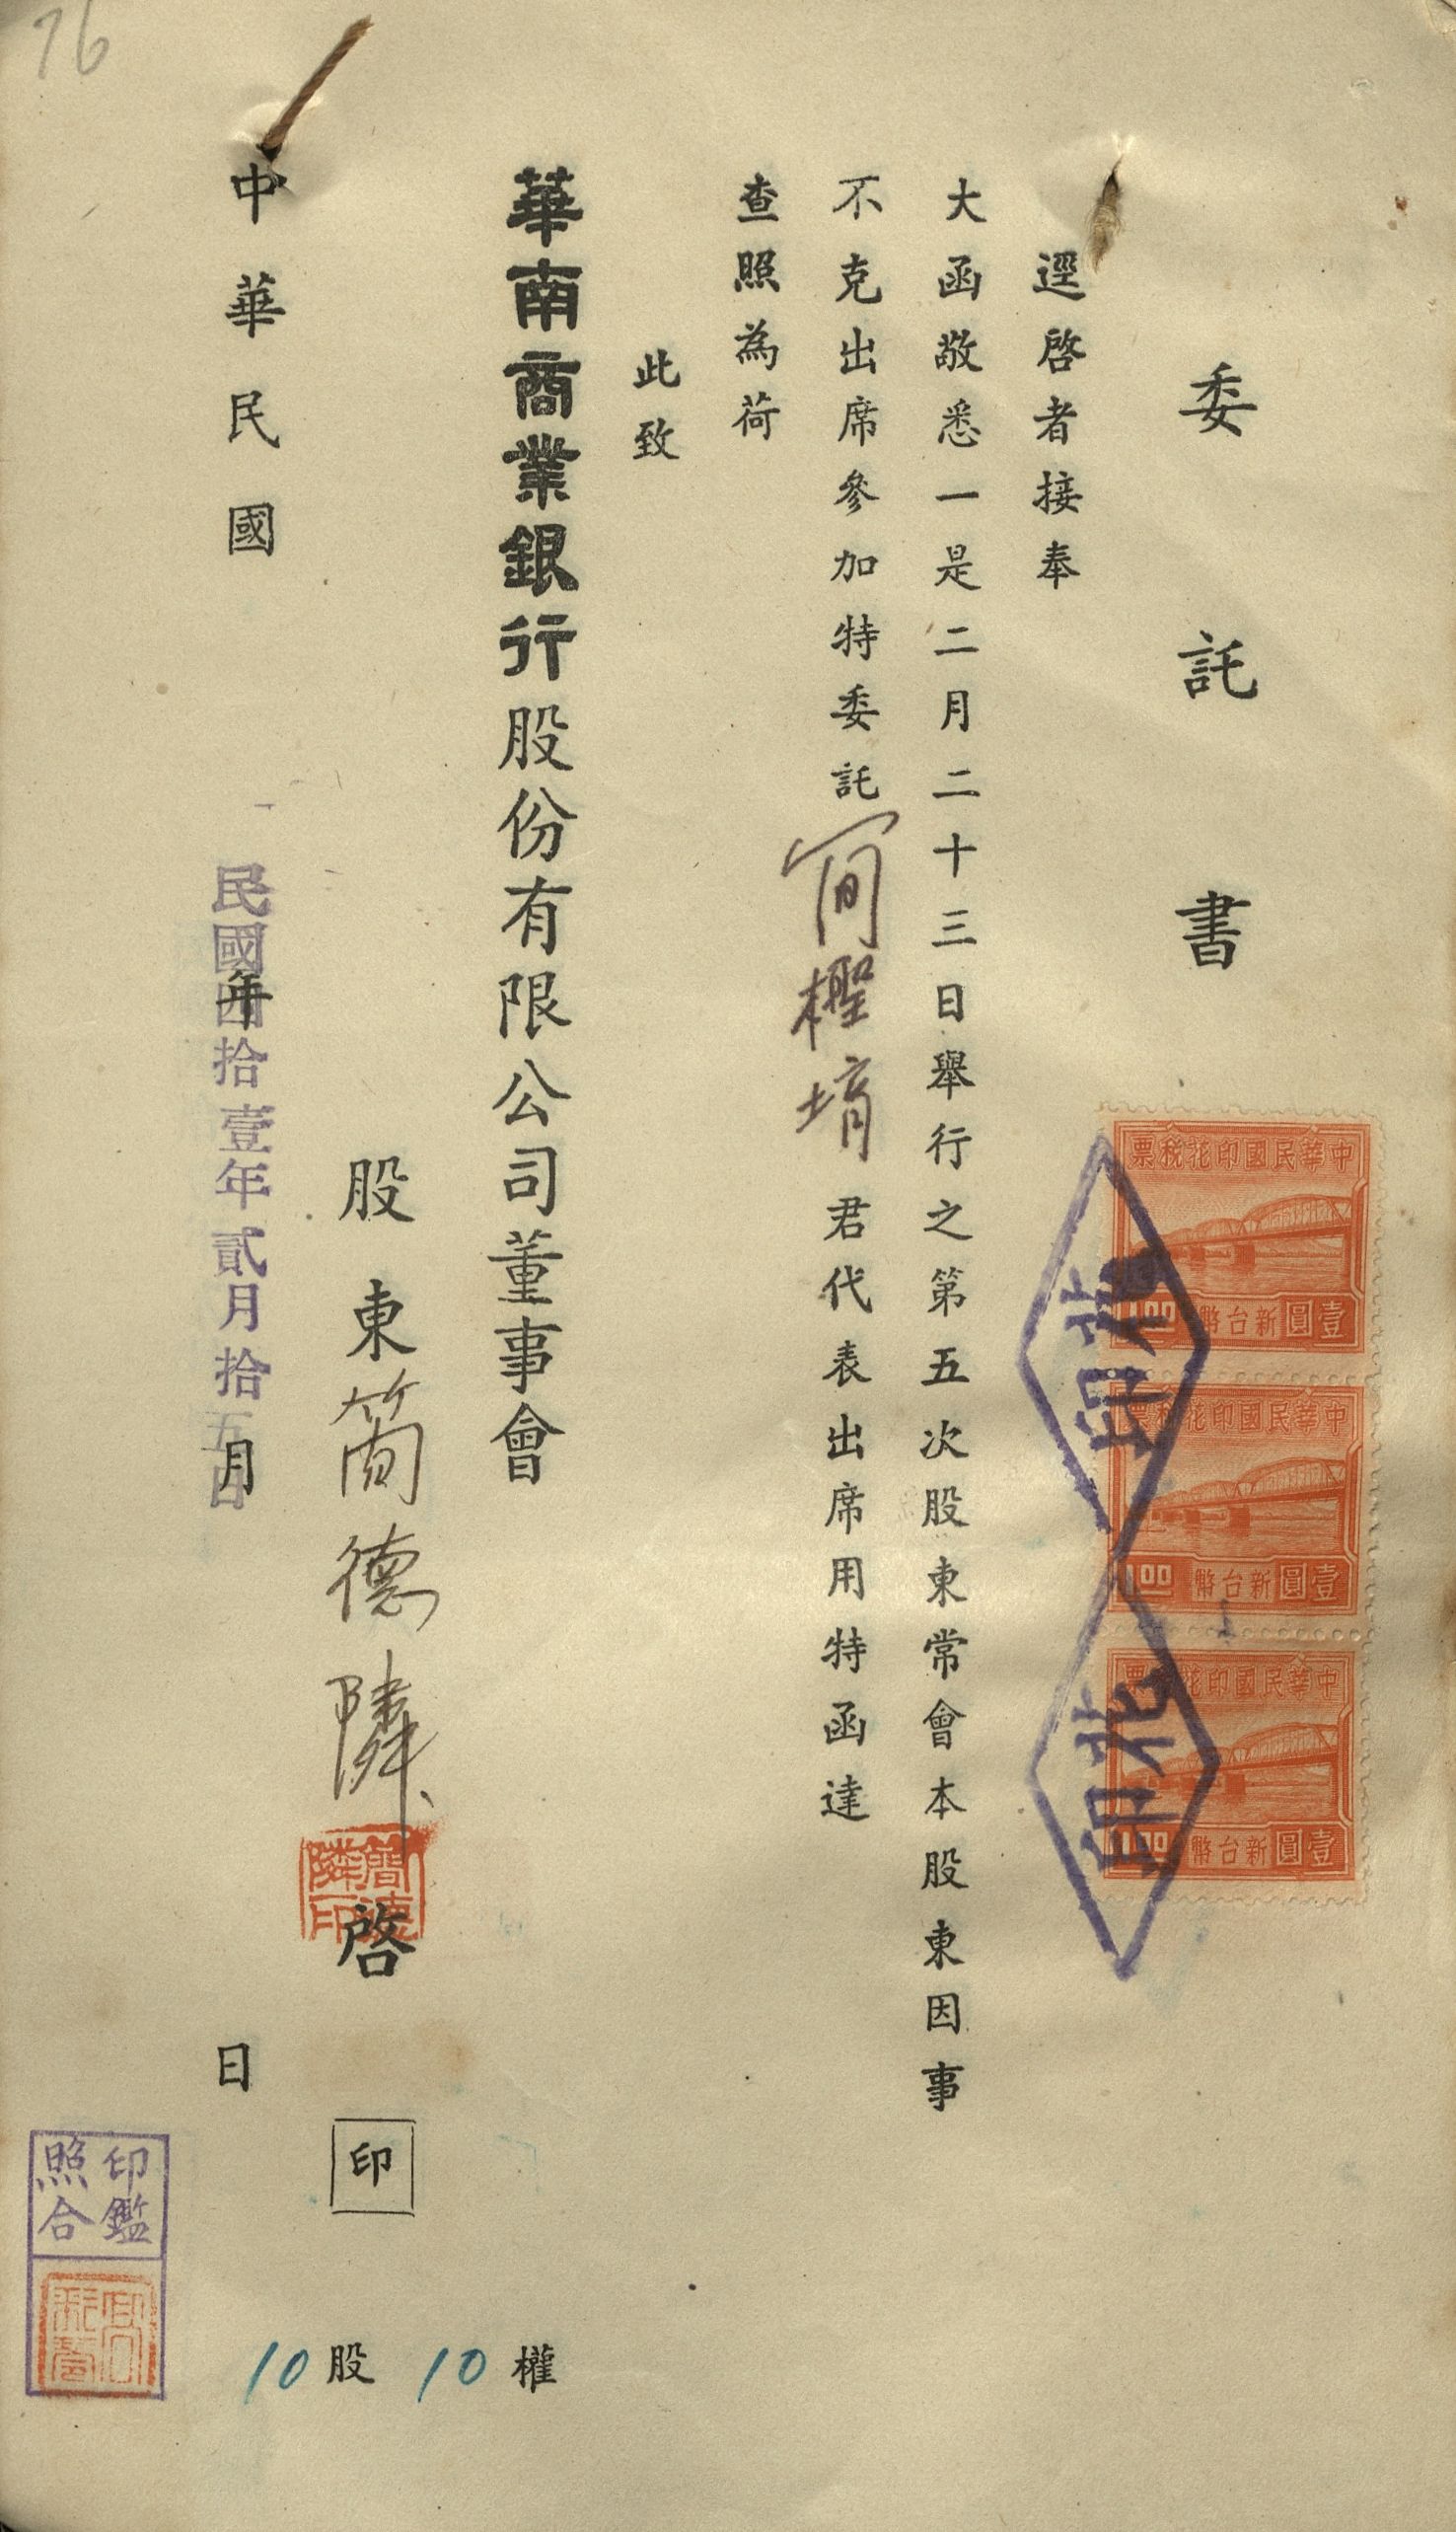 76
委託書
逕啓者接奉
大函敬悉一是二月二十三日舉行之第五次股東常會本股東因事
不克出席參加特委託簡檉堉君代表出席用特函達
查照為荷
此致
華南商業銀行股份有限公司董事會
股東簡德隣啓
印
中華民國 年 月 日
民國四拾壹年貳月拾五日
10股 10權
中華民國印花稅票
壹圓新台幣 1.00
中華民國印花稅票
壹圓新台幣 1.00
中華民國印花稅票
壹圓新台幣 1.00
印花
印花
簡德
隣印
印鑑
照合